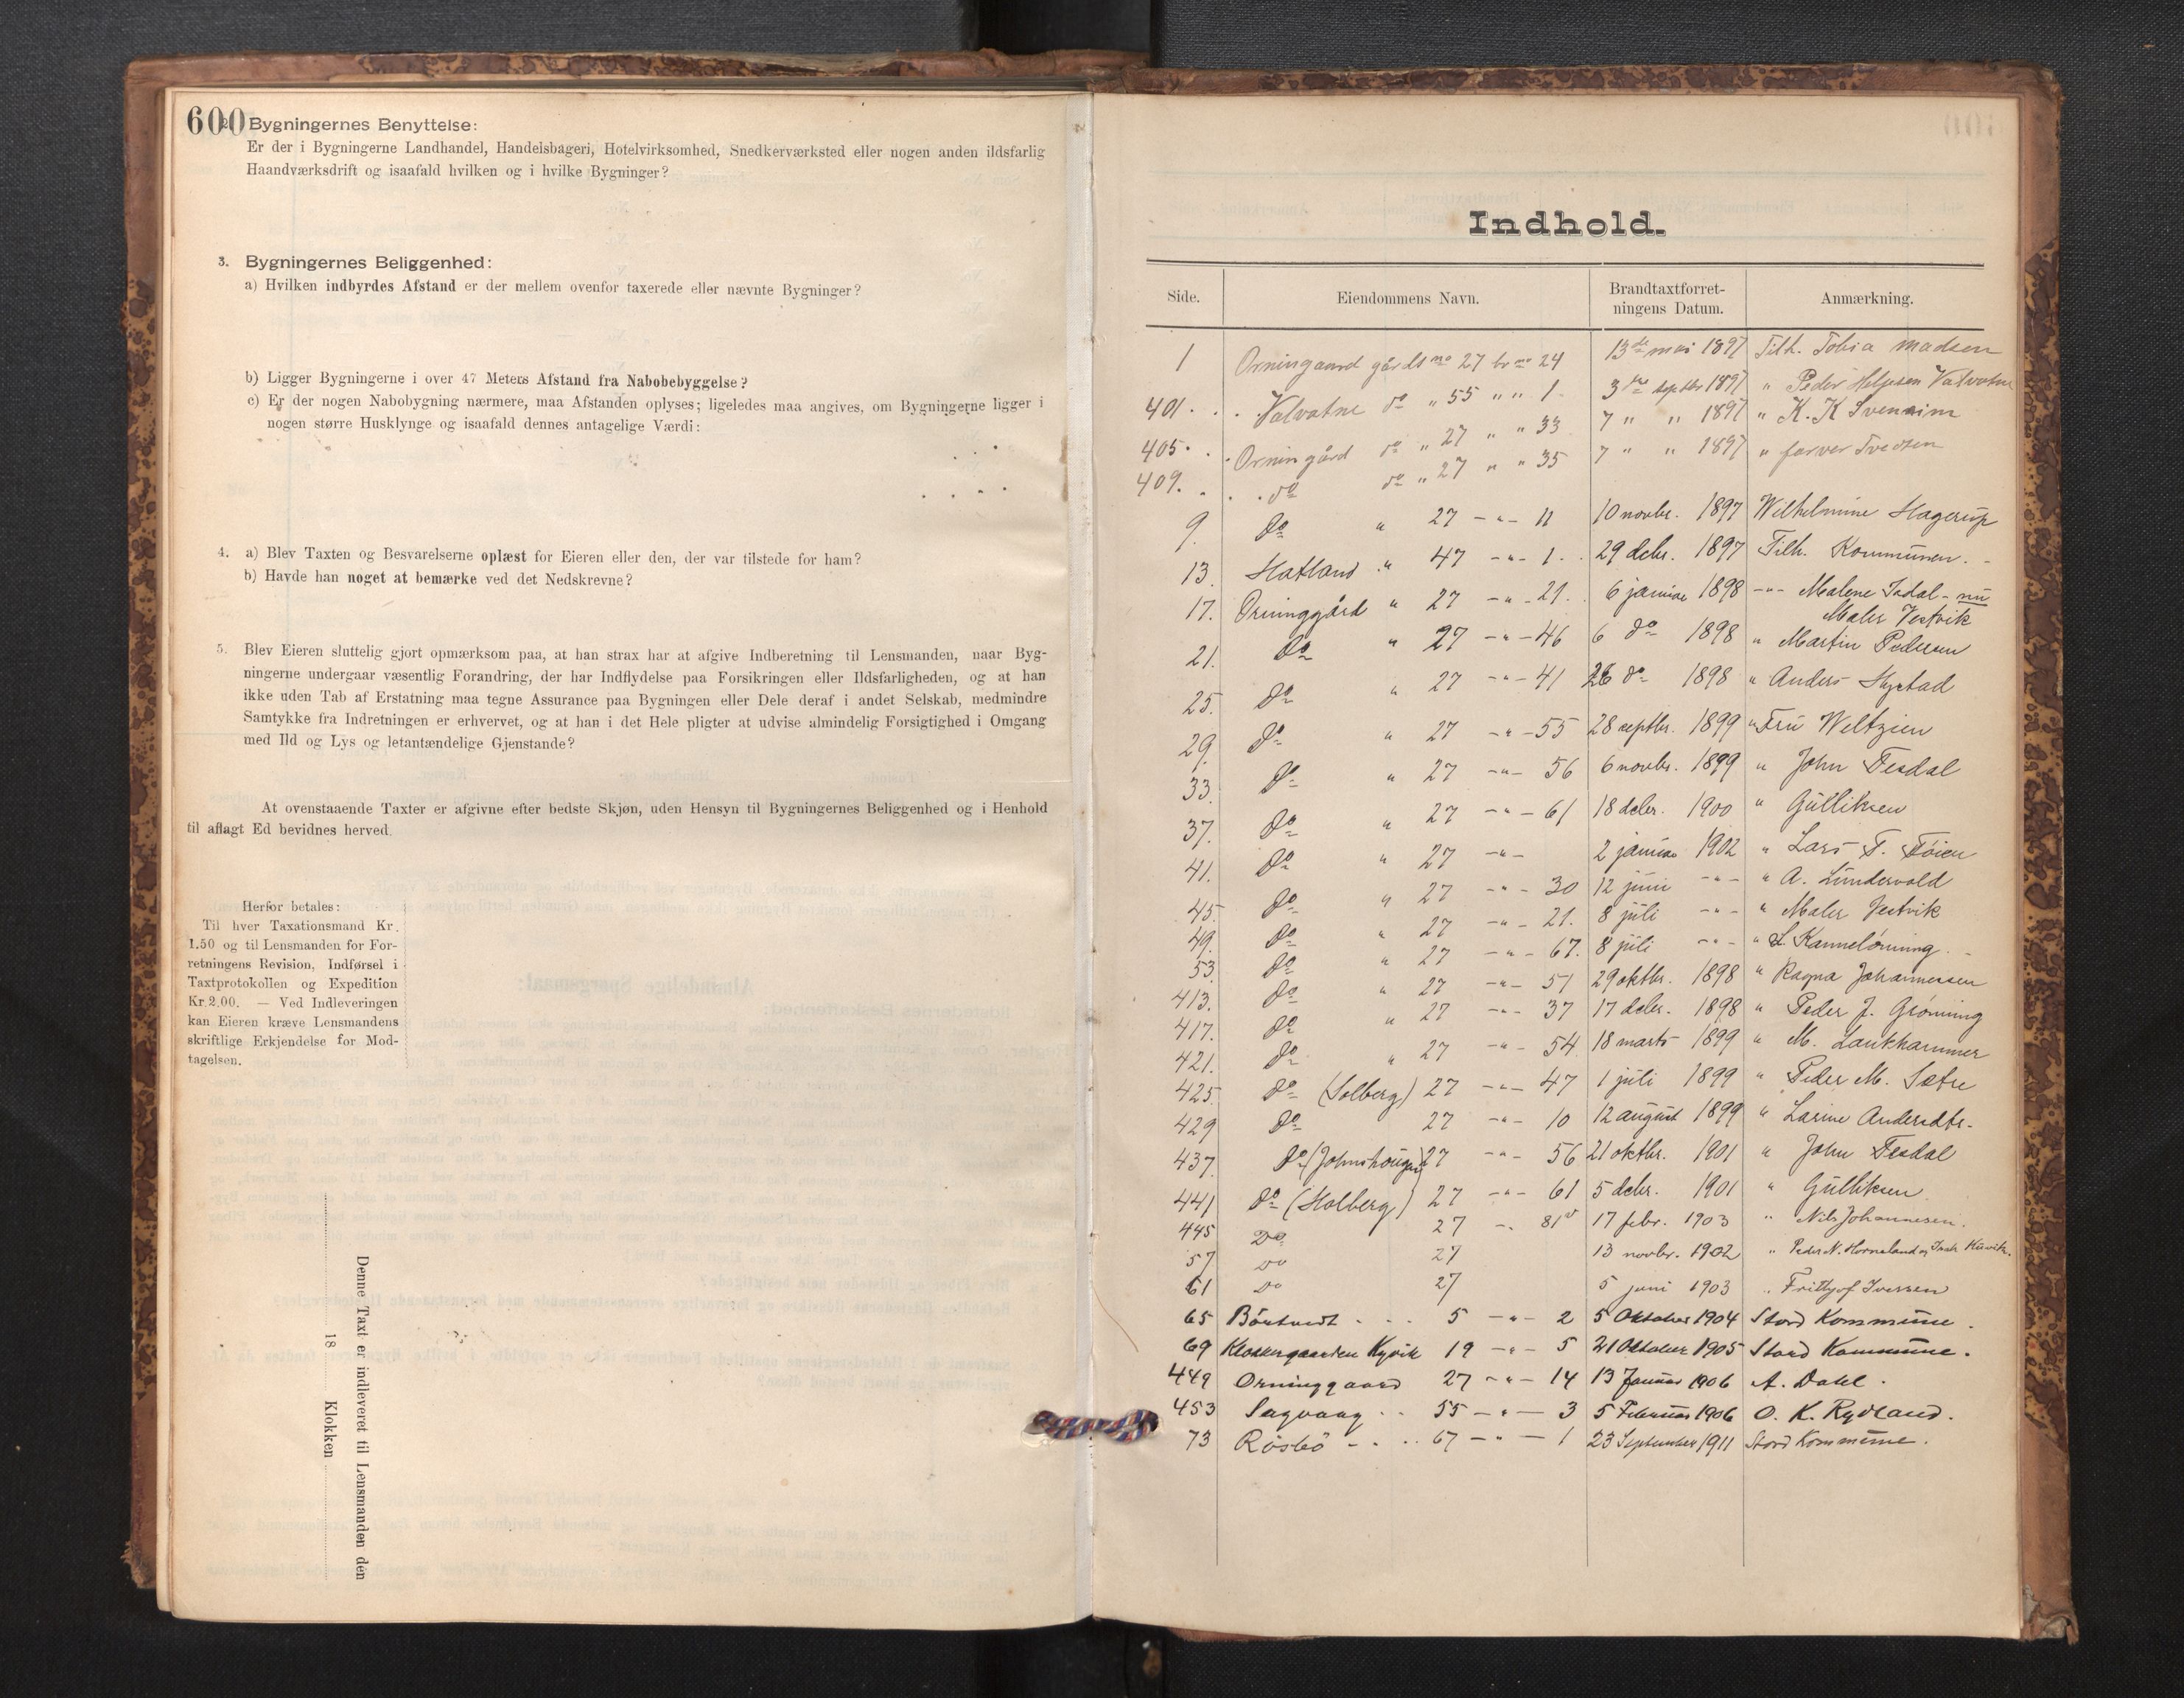 600
2. Bygningernes Benyttelse:
Er der i Bygningerne Landhandel, Handelsbageri, Hotelvirksomhed, Snedkerværksted eller nogen anden ildsfarlig
Haandværksdrift og isaafald hvilken og i hvilke Bygninger?
3. Bygningernes Beliggenhed:
a) Hvilken indbyrdes Afstand er der mellem ovenfor taxerede eller nævnte Bygninger?
b) Ligger Bygningerne i over 47 Meters Afstand fra Nabobebyggelse?
c) Er der nogen Nabobygning nærmere, maa Afstanden oplyses; ligeledes maa angives, om Bygningerne ligger i
nogen større Husklynge og isaafald dennes antagelige Værdi:
4. a) Blev Taxten og Besvarelserne oplæst for Eieren eller den, der var tilstede for ham?
b) Havde han noget at bemærke ved det Nedskrevne?
5. Blev Eieren sluttelig gjort opmærksom paa, at han strax har at afgive Indberetning til Lensmanden, naar Byg-
ningerne undergaar væsentlig Forandring, der har Indflydelse paa Forsikringen eller Ildsfarligheden, og at han
ikke uden Tab af Erstatning maa tegne Assurance paa Bygningen eller Dele deraf i andet Selskab, medmindre
Samtykke fra Indretningen er erhvervet, og at han i det Hele pligter at udvise almindelig Forsigtighed i Omgang
med Ild og Lys og letantændelige Gjenstande?
At ovenstaaende Taxter er afgivne efter bedste Skjøn, uden Hensyn til Bygningernes Beliggenhed og i Henhold
til aflagt Ed bevidnes herved.
Herfor betales:
Til hver Taxationsmand Kr.
1.50 og til Lensmanden for For-
retningens Revision, Indførsel i
Taxtprotokollen og Expedition
Kr. 2.00. — Ved Indleveringen
kan Eieren kræve Lensmandens
skriftlige Erkjendelse for Mod-
tagelsen.
Denne Taxt er indleveret til Lensmanden den
18 Klokken
Indhold.
Side. Eiendommens Navn. Brandtaxtforret-
ningens Datum. Anmærkning.
1 Orningaard gårds no 27 br no 24 13de mai 1897 Tilh. Tobia Madsen
401. Valvatne do " 55 " " 1. 3die septbr 1897 " Peder Helgesen Valvatne
405. Orningård do " 27 " " 33 7 " " 1897 " K. K Svennim
409. do do " 27 " " 35 7 " " 1897 " farver Tvedten
9. do " 27 - " - 11 10 novbr. 1897 Wilhelmine Hagerup
13. Hatland " 47 - " - 1. 29 debr. 1897 Tilh. Kommunen.
17. Orninggård " 27 - " - 21. 6 januar 1898 - " - Malene Indal - nu
Maler Vestvik
21. do " 27 - " - 46 6 do 1898 " Martin Pedersen
25. do " 27 - " - 41 26 do 1898 " Anders Hystad
29. do " 27 - " - 55 28 septbr. 1899 " Fru Weltzien
33. do " 27 - " - 56 6 novbr. 1899 " John Tesdal
37. do " 27 - " - 61 18 debr. 1900 " Gulliksen
41. do " 27 - " - 2 januar 1902 " Lars T. Tøien
45. do " 27 - " - 30 12 juni - " - " A. Lundervold
49. do " 27 - " - 21. 8 juli - " - " Maler Vestvik
53. do " 27 - " - 67. 8 juli - " - " L Kannelønning.
413. do " 27 - " - 51 29 oktbr. 1898 " Ragna Johannessen
417. do " 27 - " - 37 17 debr. 1898 " Peder J. Grønning
421. do " 27 - " - 54. 18 marts 1899 " M. Laukhammer
425. do (Solberg) 27 - " - 47 1 juli 1899 " Peder M. Sætre
429 do 27 - " - 10 12 august 1899 " Larine Andersdtr.
437. do (Johnshougen) 27 - " - 56 21 oktbr. 1901 " John Tesdal
441 do (Holberg) 27 - " - 61 5 debr. 1901 " Gulliksen
445 Do 27 - " 81 17 febr. 1903 " Nils Johannesen.
57 Do 27 13 novbr. 1902 " Peder N. Horneland og
61 Do 27 5 juni 1903 " Frithjof Iversen
65 Børtvedt 5 - " - 2 5 Oktober 1904 Stord Kommune.
69 Klokkergaarden Kyvik 19 - " - 5 21 Oktober 1905 Stord Kommune.
449 Orninggaard 27 - " - 14 13 Januar 1906 A. Dahl.
453 Sagvaag 55 - " - 3 5 Februar 1906 O. K. Rydland.
73 Røsbø 67 - " - 1 23 September 1911 Stord Kommune.